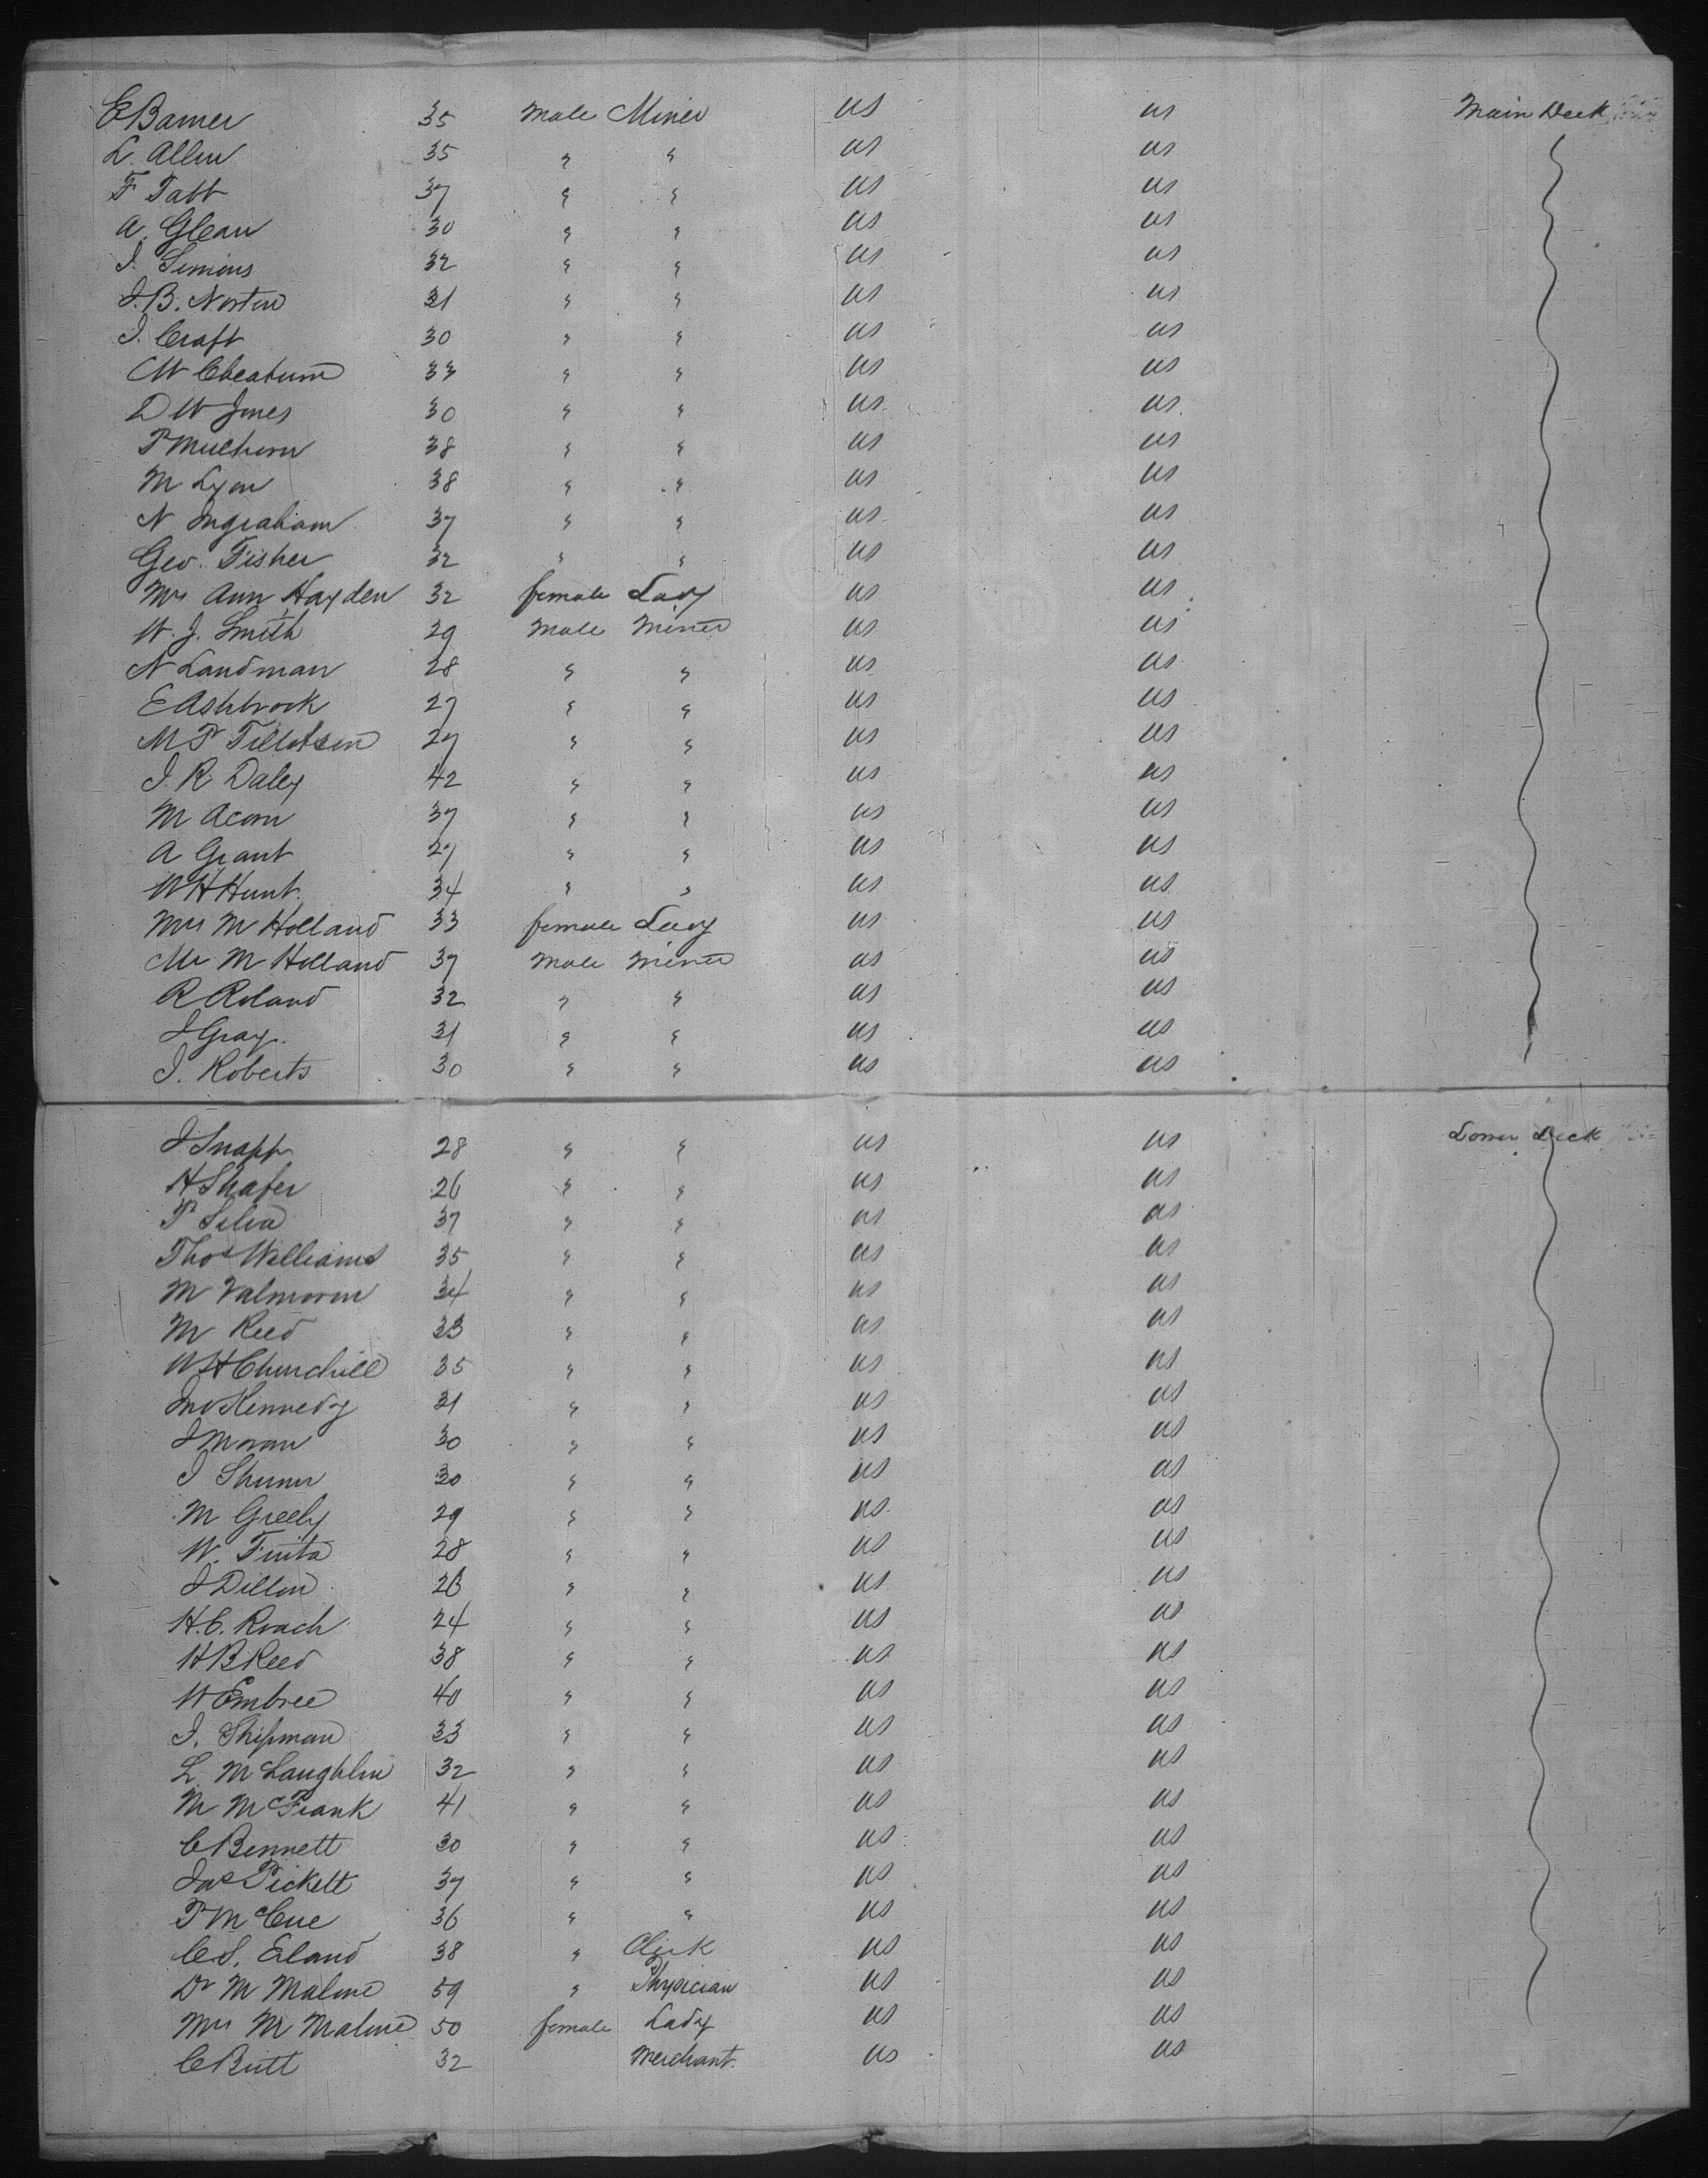 E Barner 35 Male Miner US US Main Deck
L. Allen 35 " " US US
F Tabb 37 " " US US
A. Glean 30 " " US US
J. Simins 32 " " US US
J. B. Norton 31 " " US US
J. Craft 30 " " US US
C W Cheatum 33 " " US US
D W Jones 30 " " US US
P Mulhern 38 " " US US
M Lyon 38 " " US US
N Ingraham 37 " " US US
Geo. Fisher 32 " " US US
Mrs Ann Hayden 32 female Lady US US
W. J. Smith 29 Male Miner US US
N Landman 28 " " US US
E Ashbrook 27 " " US US
M P Tillotson 27 " " US US
J. R Daley 42 " " US US
M Acorn 37 " " US US
A Grant 27 " " US US
W H Hunt. 34 " " US US
Mrs M Holland 33 female Lady US US
Mr M Holland 37 Male Miner US US
R Roland 32 " " US US
J Gray. 31 " " US US
J. Roberts 30 " " US US
J Snapp 28 " " US US Lower Deck
H Shafer 26 " " US US
P Silia 37 " " US US
Thos Williams 35 " " US US
M Valmoren 34 " " US US
M Reed 33 " " US US
W H Churchill 35 " " US US
Jno Kennedy 31 " " US US
J Moran 30 " " US US
J 30 " " US US
M Greely 29 " " US US
W. 28 " " US US
J Dillon 26 " " US US
H. C. Roach 24 " " US US
H B Reed 38 " " US US
W Embree 40 " " US US
J. Shipman 33 " " US US
L. McLaughlin 32 " " US US
M McFrank 41 " " US US
C Bennett 30 " " US US
Jas Pickett 37 " " US US
P McCue 36 " " US US
C. S. Eland 38 " Clerk US US
Dr M Malone 59 " Physician US US
Mrs M Malone 50 female Lady US US
C Butt 32 Merchant. US US